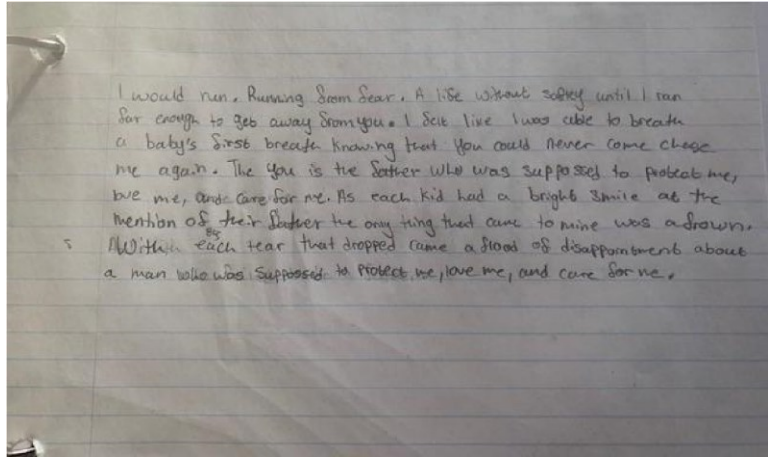 I would run. Running from fear. A life without safety until I ran
far enough to get away from you. I felt like I was able to breath
a baby's first breath knowing that you could never come chase
me again. The you is the father who was suppossed to protect me,
love me, and care for me. As each kid had a bright smile at the
mention of their father the only thing that came to mine was a frown.
With each tear that dropped came a flood of disappointment about
a man who was suppossed to protect me, love me, and care for me.